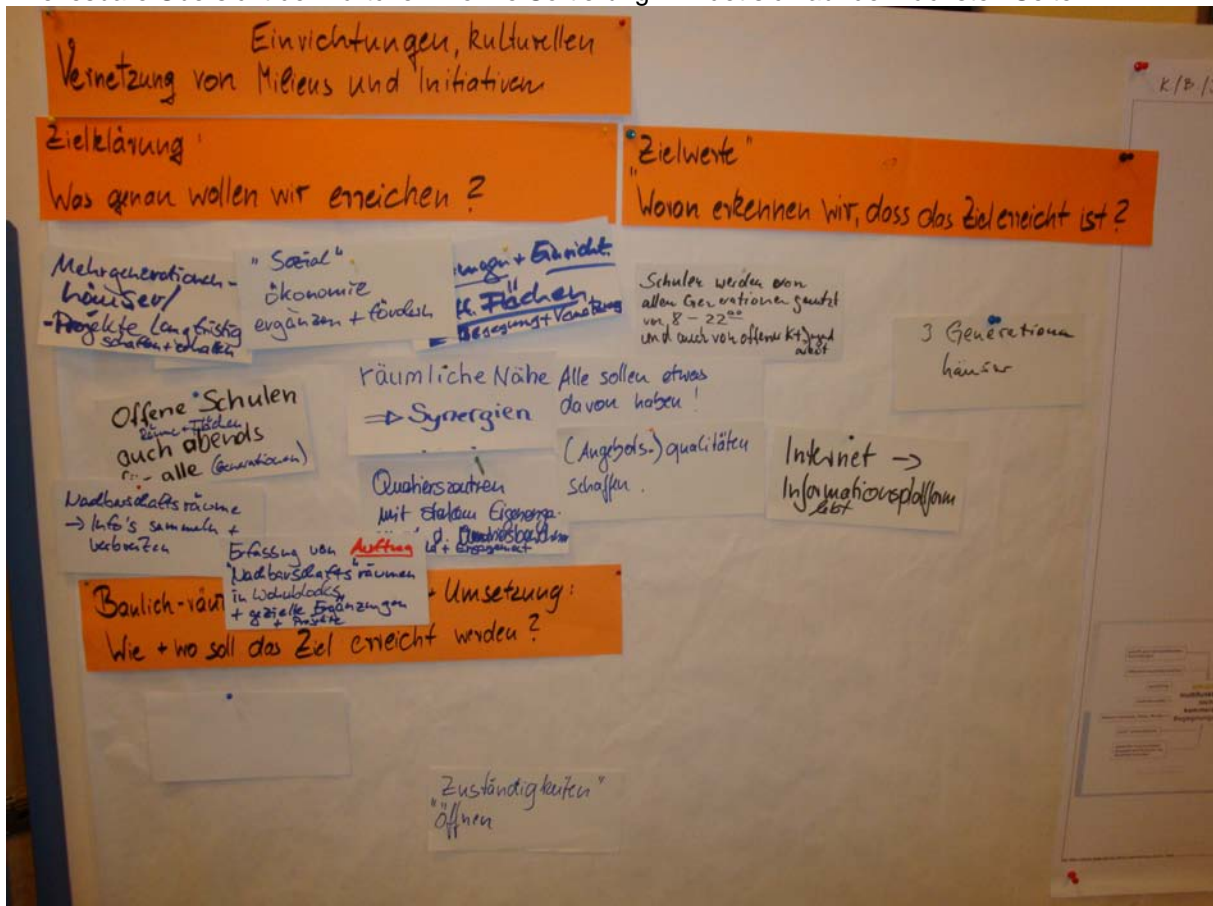 Einrichtungen, kulturellen
Vernetzung von Milieus und Initiativen
Zielklärung:
Was genau wollen wir erreichen?
"Zielwerte"
Woran erkennen wir, dass das Ziel erreicht ist?
K/B/
Mehrgenerationen-
häuser/
-Projekte langfristig
schaffen + erhalten
"Sozial"
ökonomie
ergänzen + fördern
+ Einricht.
Flächen
Begegnung + Vernetzung
Schulen werden von
allen Generationen genutzt
von 8 – 22⁰⁰
und auch von offener K+Jugend
arbeit
3 Generationen
häuser
Offene Schulen
Räume + Flächen
auch abends
alle (Generationen)
räumliche Nähe
=> Synergien
Alle sollen etwas
davon haben!
(Angebots-)qualitäten
schaffen.
Internet ->
Informationsplattform
lebt
Nachbarschaftsräume
-> Info's sammeln +
verbreiten
Quartierszentren
mit starkem Eigenenga.
d. Quartiersbewohner
+ Engagement
Erfassung von Auftrag
"Nachbarschafts"räumen
in Wohnblocks
+ gezielte Ergänzungen
+ Projekte
Umsetzung:
Wie + wo soll das Ziel erreicht werden?
"Zuständigkeiten"
öffnen